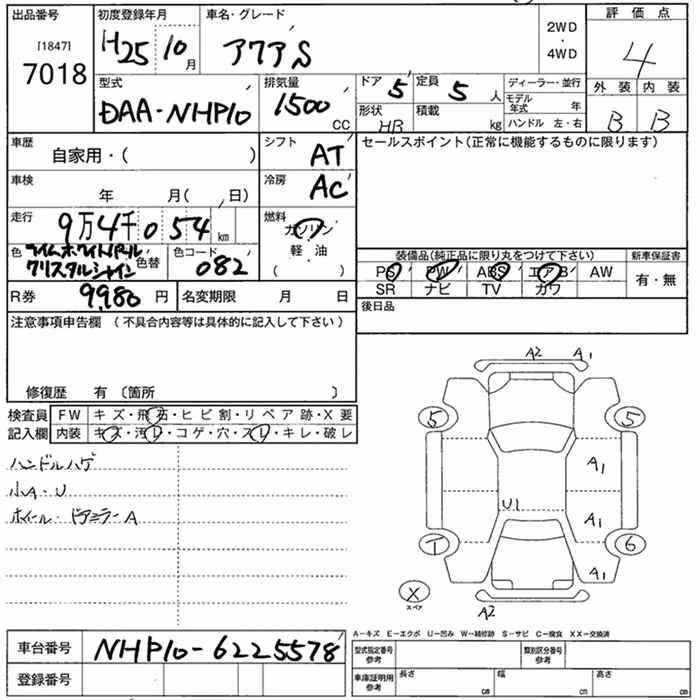 出品番号
[1847]
7018
初度登録年月
H25 10月
車名・グレード
アクア S
2WD
・
4WD
評価点
4
外装 内装
B B
型式
DAA-NHP10
排気量
1500 CC
ドア 5
定員 5 人
形状 HB
積載 kg
ディーラー・並行
モデル年式 年
ハンドル 左・右
車歴
自家用・( )
シフト AT
車検
年 月( 日)
冷房 AC
走行
9万4千054 km
燃料
ガソリン
軽・油
( )
色 ライムホワイトパール
クリスタルシャイン
色替
色コード 082
R券 9980 円
名変期限 月 日
セールスポイント(正常に機能するものに限ります)
装備品(純正品に限り丸をつけて下さい)
新車保証書
PS PW ABS エアB AW
SR ナビ TV カワ
有・無
後日品
注意事項申告欄 (不具合内容等は具体的に記入して下さい)
修復歴 有 〔箇所 〕
検査員
記入欄
FW キズ・飛石・ヒビ割・リペア跡・X要
内装 キズ・汚レ・コゲ・穴・スレ・キレ・破レ
ハンドルハゲ
小A・U
ホイール・ドアミラーA
A2 A1
5 5
A1
U1 A1
T 6
A1
X
スペア
A2
A-キズ E-エクボ U-凹み W-補修跡 S-サビ C-腐食 XX-交換済
車台番号 NHP10-6225578
登録番号
型式指定番号
参考
類別区分番号
参考
車庫証明用
参考
長さ cm
幅 cm
高さ cm